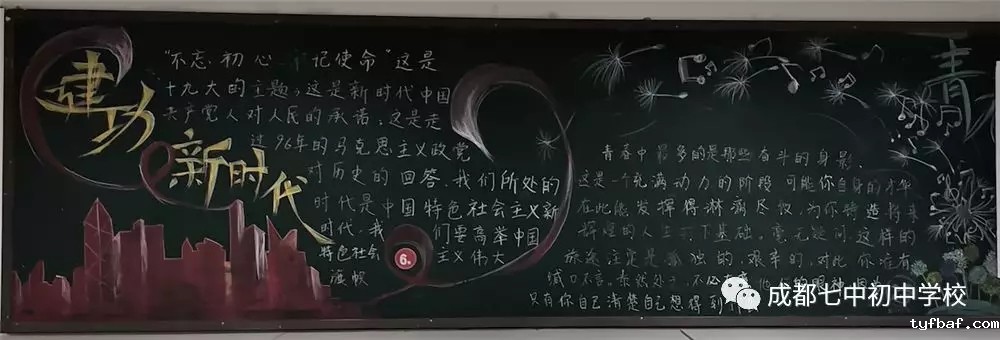 建功
新时代
"不忘初心 记使命"这是
十九大的主题,这是新时代中国
共产党人对人民的承诺;这是走
过96年的马克思主义政党
对历史的回答。我们所处的
时代是中国特色社会主义新
时代,我 们要高举中国
特色社会 主义伟大
旗帜
6.
青
青春中最多的是那些奋斗的身影,
这是一个充满动力的阶段 可能你自身的才华
在此能发挥得淋漓尽致,为你将造将来
辉煌的人生打下基础,毫无疑问,这样的
旅途注定是孤独的,艰辛的,对此,你唯有
缄口不言,泰然处之,不必在意
只有你自己清楚自己想得到
成都七中初中学校
tyfbaf.com